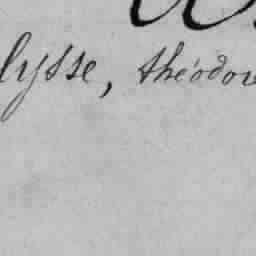 lysse, théodor